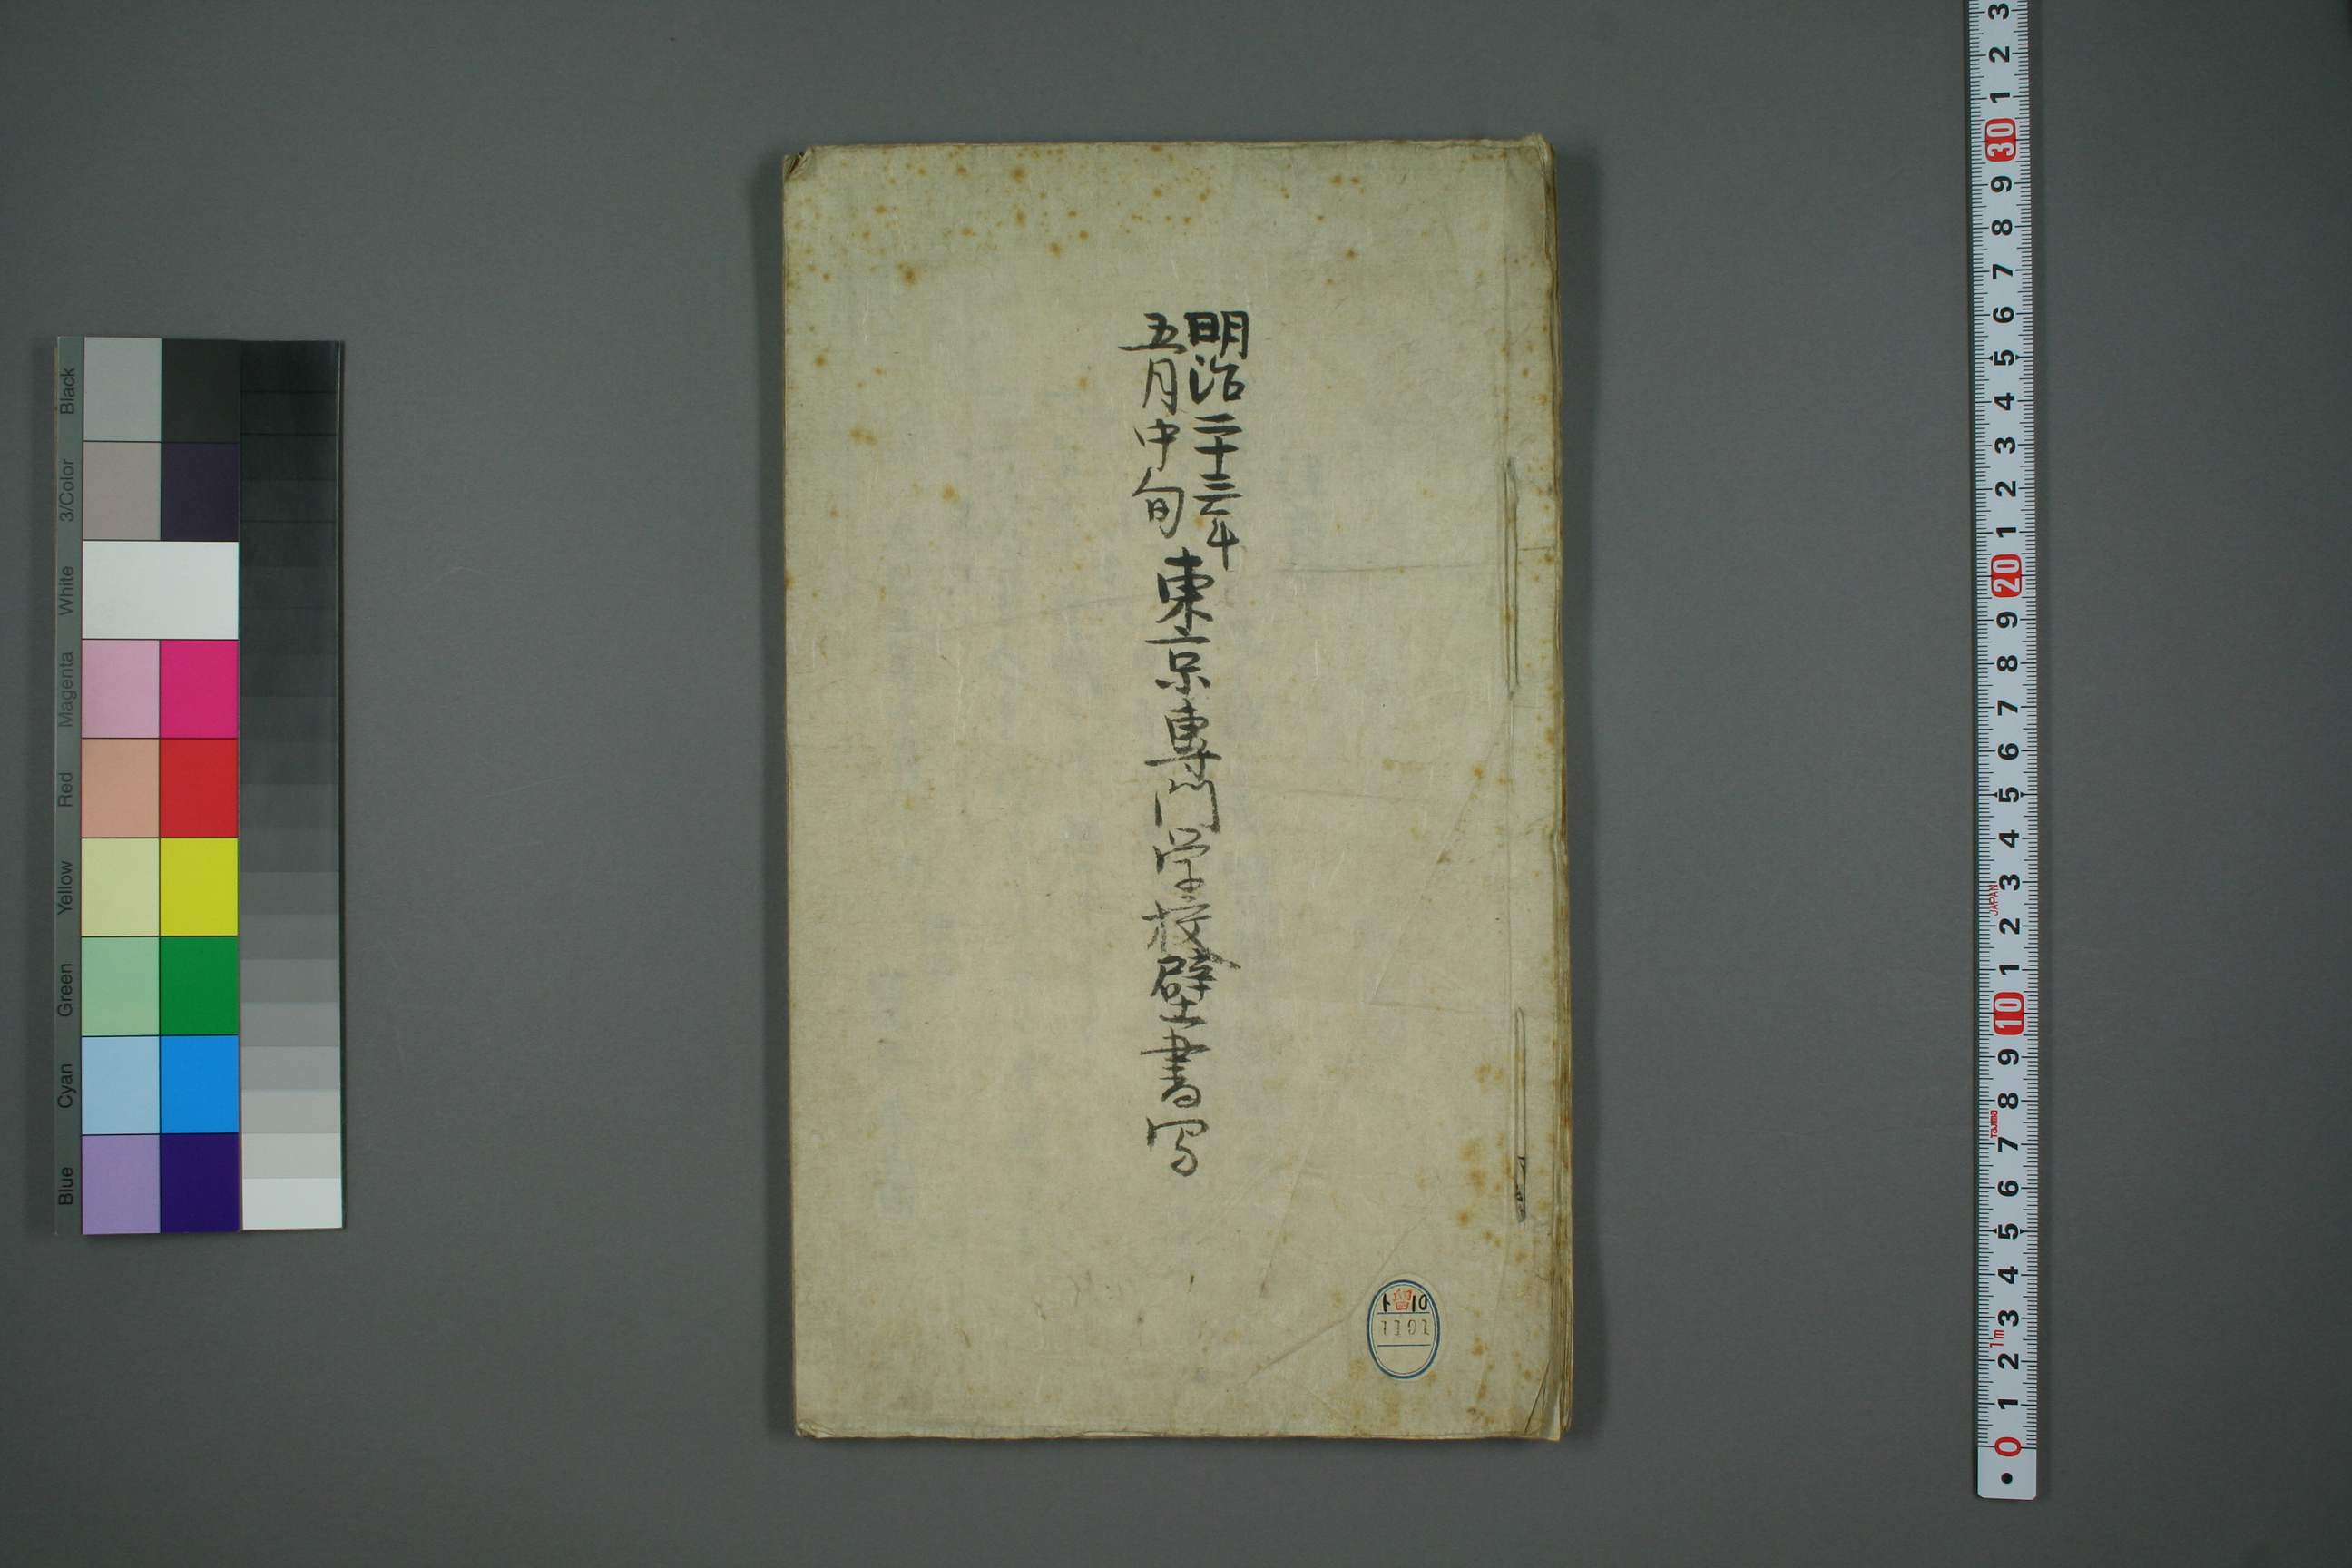 明治二十三年
五月中旬
東京専門学校壁書写
ト 留 10
1101
Black
3/Color
White
Magenta
Red
Yellow
Green
Cyan
Blue
3
2
1
30
9
8
7
6
5
4
3
2
1
20
9
8
7
6
5
4
3
JAPAN
2
1
10
9
8
Tajima
7
6
5
4
3
1m
2
1
0